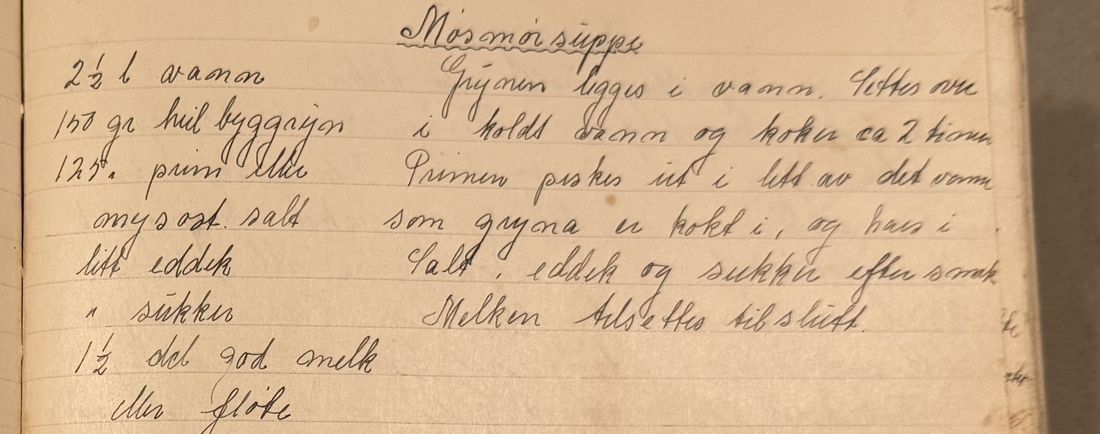 Møsmørsuppe
2 1/2 l vann
150 gr hel byggryn
125 " prim eller
mysost. salt
litt eddek
" sukker
1 1/2 del god melk
eller fløte
Grynen legges i vann. Settes over
i koldt vann og koker ca 2 timer
Primen piskes ut i litt av det vann
som gryna er kokt i, og haes i
Salt, eddek og sukker efter smak
Melken tilsettes tilslutt.